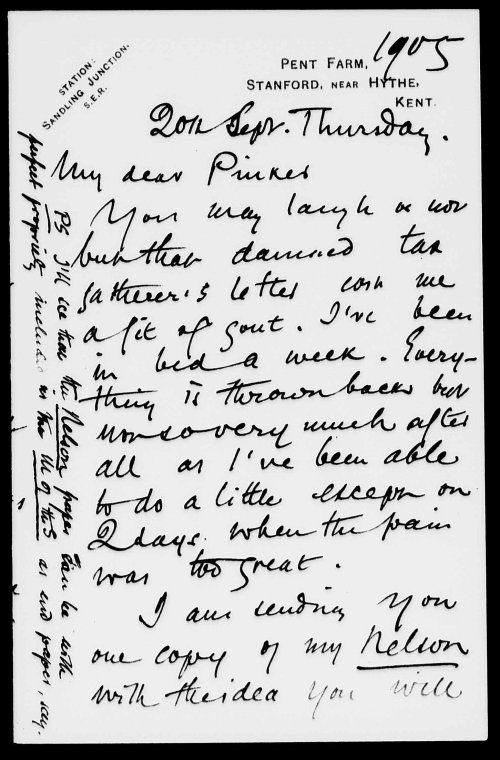 STATION:
SANDLING JUNCTION,
S.E.R.
1905
PENT FARM,
STANFORD, NEAR HYTHE,
KENT.
20th Sept. Thursday.
My dear Pinker
You may laugh or not
but that damned tax
gatherer's letter cost me
a fit of gout. I've been
in bed a week. Every-
thing is thrown back but
not so very much after
all as I've been able
to do a little except on
2 days when the pain
was too great.
I am sending you
one copy of my Nelson
with the idea you will
PS I'll see that the Nelson paper can be with
perfect propriety included in the M of the S as end paper, say.